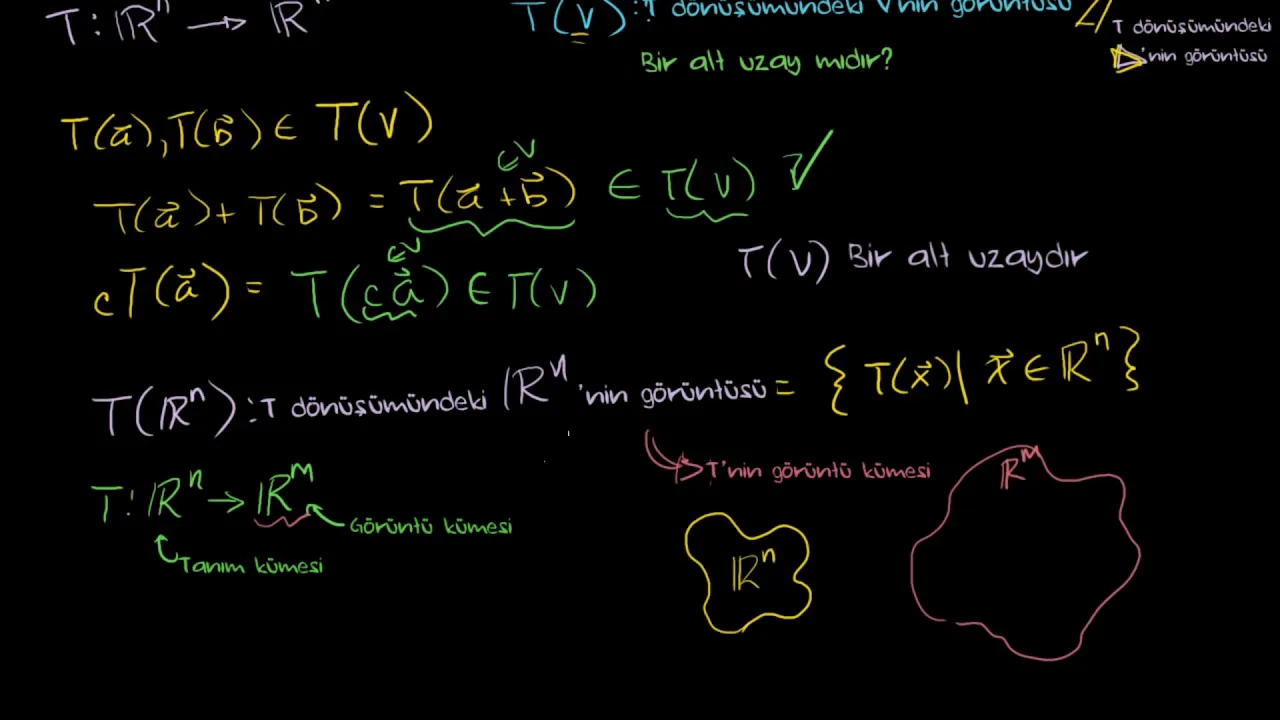 T: ℝⁿ → ℝ
T(V): T dönüşümündeki V'nin görüntüsü
T dönüşümündeki
'nin görüntüsü
Bir alt uzay mıdır?
T(a⃗), T(b⃗) ∈ T(V)
T(a⃗) + T(b⃗) = T(a⃗ + b⃗) ∈ T(V) ✓
∈V
cT(a⃗) = T(ca⃗) ∈ T(V)
∈V
T(V) Bir alt uzaydır
T(ℝⁿ): T dönüşümündeki ℝⁿ'nin görüntüsü = { T(x⃗) | x⃗ ∈ ℝⁿ }
T'nin görüntü kümesi
T: ℝⁿ → ℝᵐ
Görüntü kümesi
Tanım kümesi
ℝⁿ
ℝᵐ